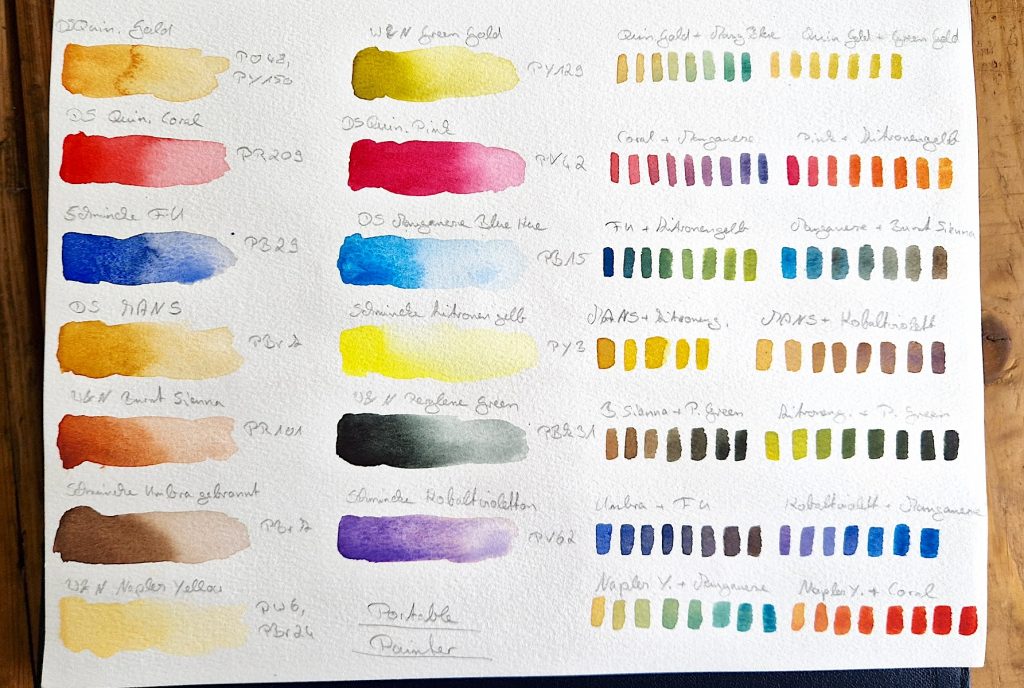 DS Quin. Gold
PO48,
PY150
DS Quin. Coral
PR209
Schmincke F.U
PB29
DS MANS
PBr7
W&N Burnt Sienna
PR101
Schmincke Umbra gebrannt
PBr7
W&N Napler Yellow
PW6,
PBr24
W&N Green Gold
PY129
DS Quin. Pink
PV42
DS Manganese Blue Hue
PB15
Schmincke Zitronengelb
PY3
W&N Perylene Green
PBk31
Schmincke Kobaltvioletton
PV62
Portable
Painter
Quin. Gold + Mang Blue
Quin Gold + Green Gold
Coral + Manganese
Pink + Zitronengelb
FU + Zitronengelb
Manganese + Burnt Sienna
MANS + Zitroneng.
MANS + Kobaltviolett
B Sienna + P. Green
Zitroneng. + P. Green
Umbra + FU
Kobaltviolett + Manganese
Napler Y. + Manganese
Napler Y. + Coral